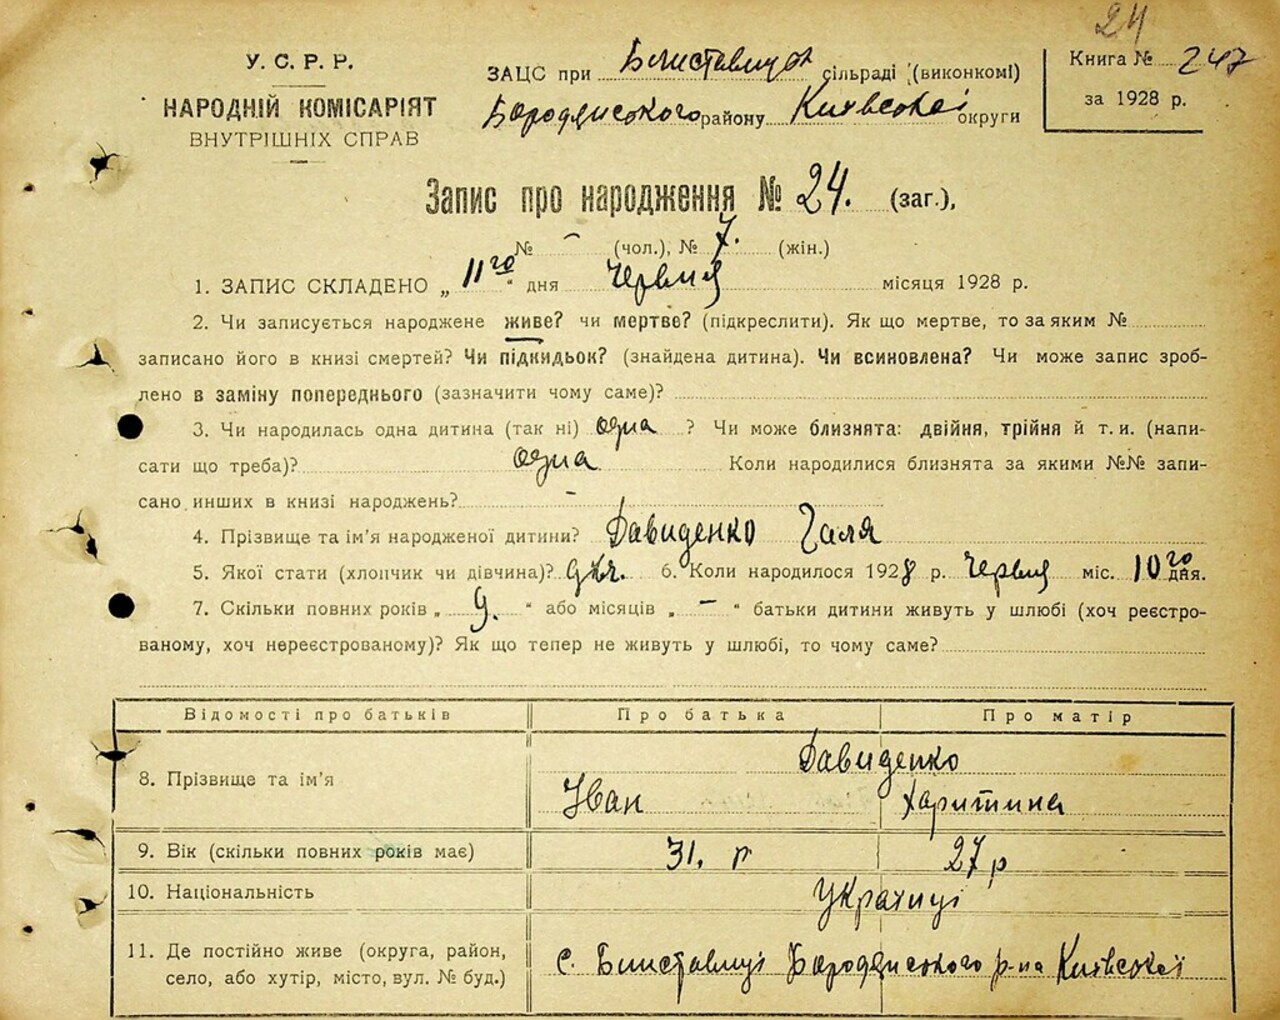 24
У. С. Р. Р.
НАРОДНІЙ КОМІСАРІЯТ
ВНУТРІШНІХ СПРАВ
ЗАЦС при сільраді (виконкомі)
Бородянського району Київської округи
Книга № 247
за 1928 р.
Запис про народження № 24. (заг.),
№ – (чол.), № 7. (жін.)
1. ЗАПИС СКЛАДЕНО „ 11го “ дня Червня місяця 1928 р.
2. Чи записується народжене живе? чи мертве? (підкреслити). Як що мертве, то за яким №
записано його в книзі смертей? Чи підкидьок? (знайдена дитина). Чи всиновлена? Чи може запис зроб-
лено в заміну попереднього (зазначити чому саме)?
3. Чи народилась одна дитина (так ні) одна ? Чи може близнята: двійня, трійня й т. и. (напи-
сати що треба)? одна Коли народилися близнята за якими №№ запи-
сано инших в книзі народжень? –
4. Прізвище та ім'я народженої дитини? Давиденко Галя
5. Якої стати (хлопчик чи дівчина)? дівч. 6. Коли народилося 1928 р. Червня міс. 10го дня.
7. Скільки повних років „ 9. “ або місяців „ – “ батьки дитини живуть у шлюбі (хоч реєстро-
ваному, хоч нереєстрованому)? Як що тепер не живуть у шлюбі, то чому саме?
Відомості про батьків Про батька Про матір
8. Прізвище та ім'я Давиденко
Іван Харитина
9. Вік (скільки повних років має) 31. р 27 р
10. Національність Українці
11. Де постійно живе (округа, район,
село, або хутір, місто, вул. № буд.) с. Бородянського р-на Київської